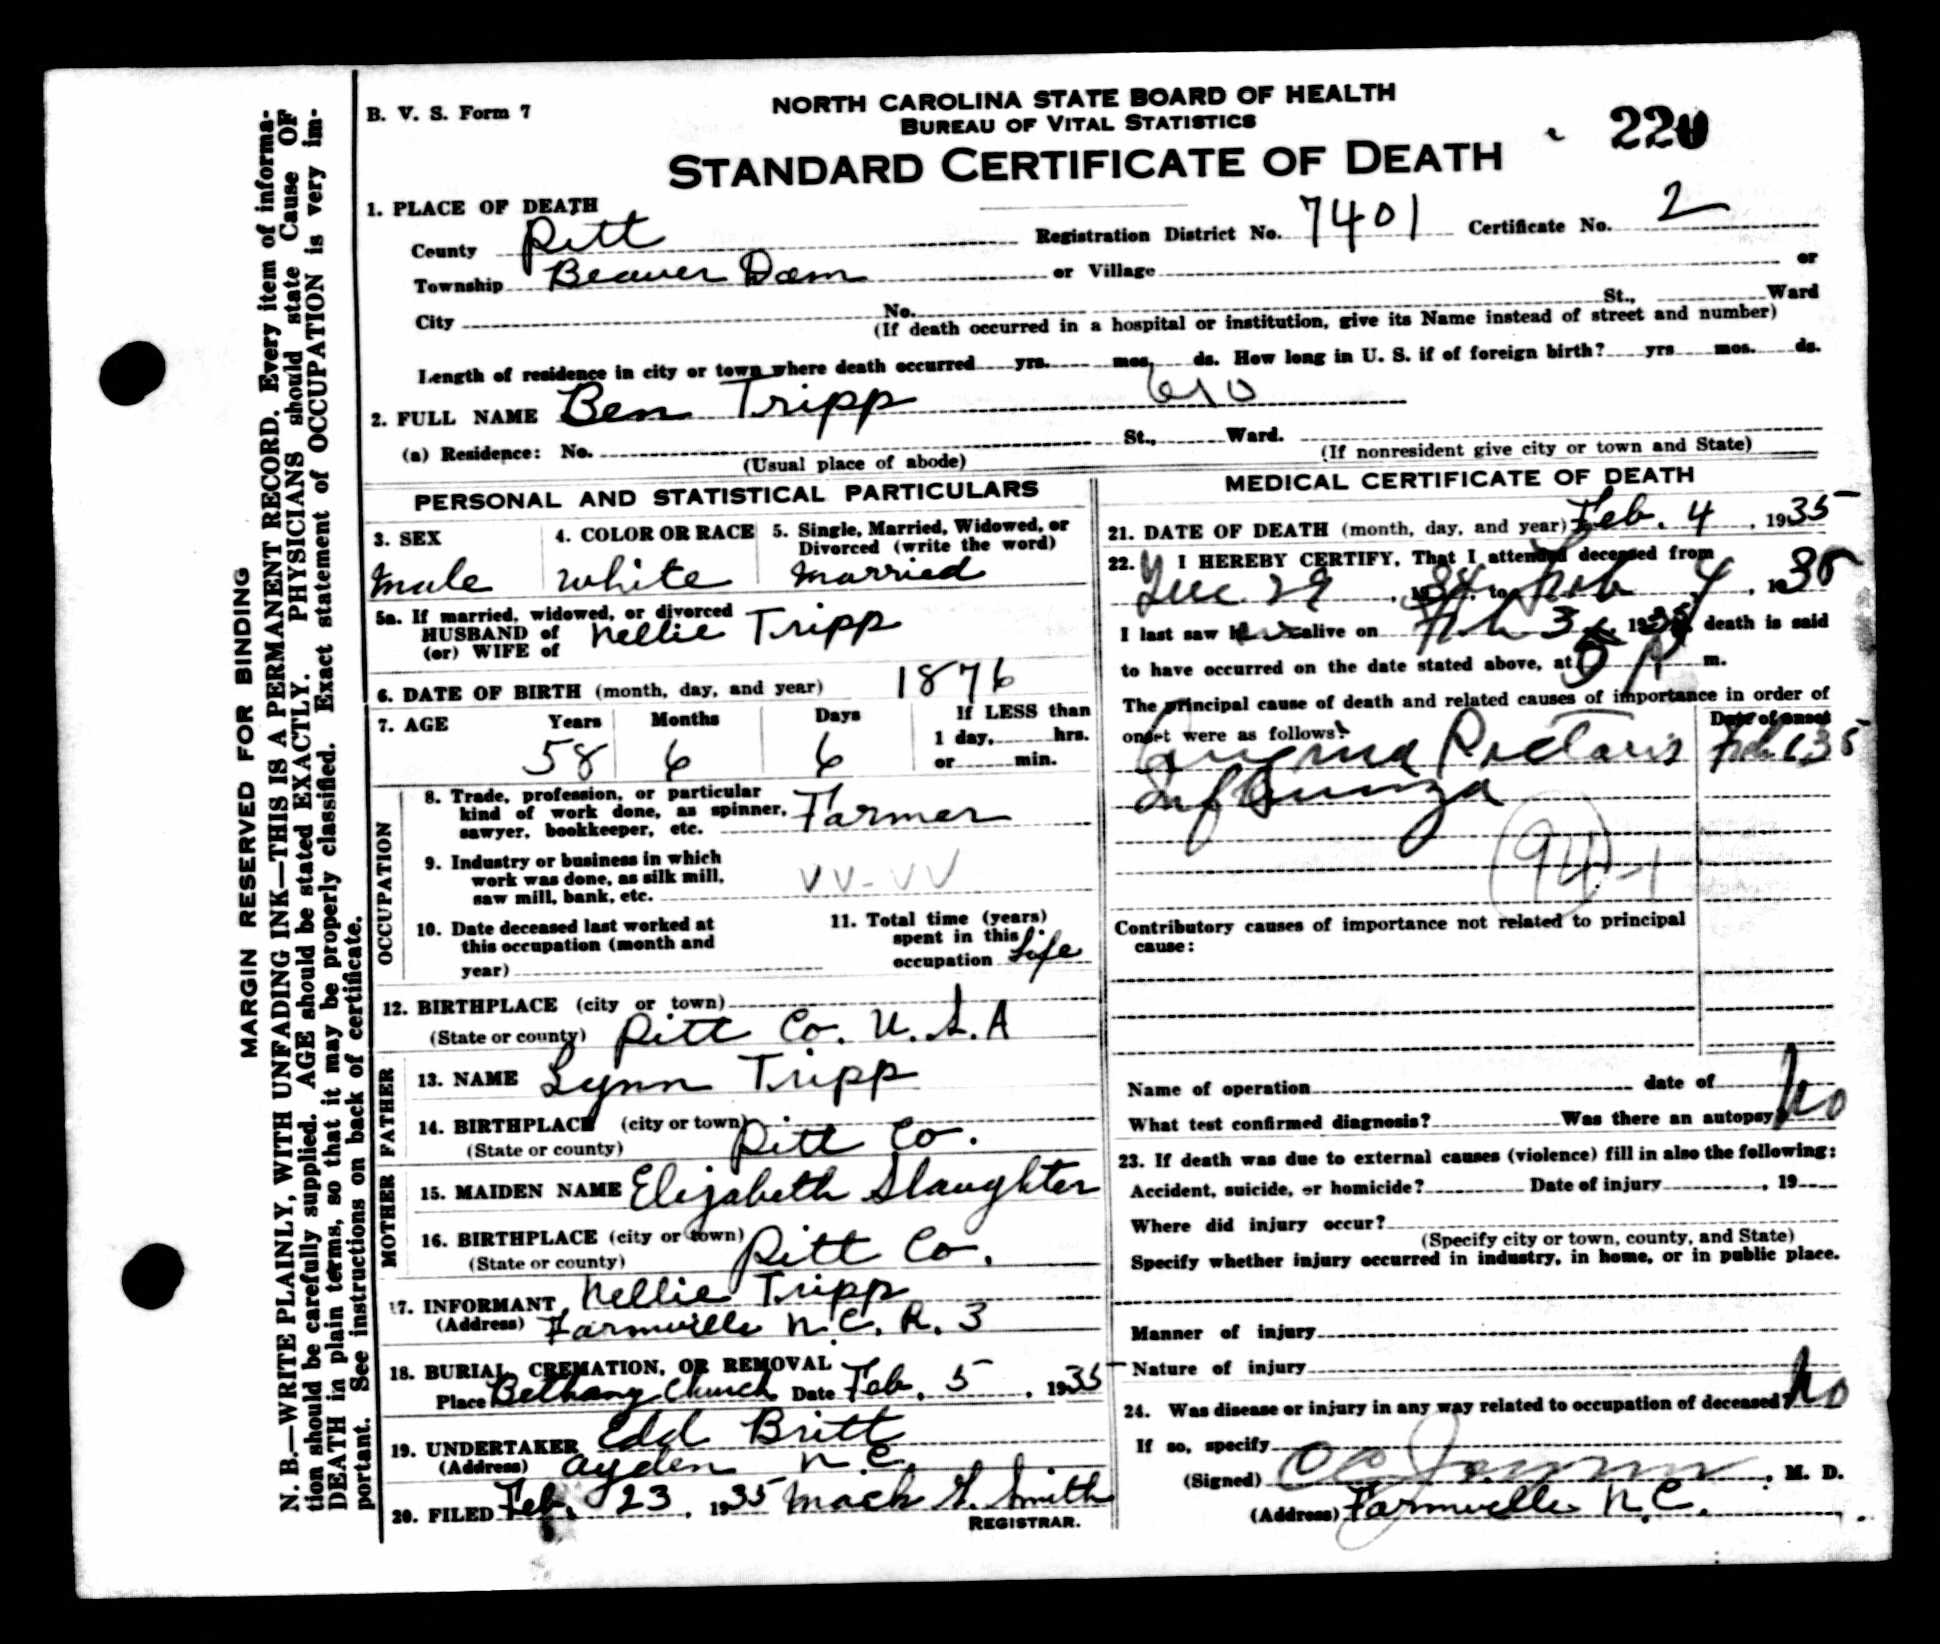 B. V. S. Form 7
NORTH CAROLINA STATE BOARD OF HEALTH
BUREAU OF VITAL STATISTICS
STANDARD CERTIFICATE OF DEATH
220
1. PLACE OF DEATH
County Pitt Registration District No. 7401 Certificate No. 2
Township Beaver Dam or Village or
City No. St., Ward
(If death occurred in a hospital or institution, give its Name instead of street and number)
Length of residence in city or town where death occurred yrs. mos. ds. How long in U. S. if of foreign birth? yrs mos. ds.
2. FULL NAME Ben Tripp 610
(a) Residence: No. St., Ward.
(Usual place of abode) (If nonresident give city or town and State)
PERSONAL AND STATISTICAL PARTICULARS
3. SEX 4. COLOR OR RACE 5. Single, Married, Widowed, or
Divorced (write the word)
male white married
5a. If married, widowed, or divorced
HUSBAND of
(or) WIFE of Nellie Tripp
6. DATE OF BIRTH (month, day, and year) 1876
7. AGE Years Months Days If LESS than
1 day, hrs.
or min.
58 6 6
OCCUPATION
8. Trade, profession, or particular
kind of work done, as spinner,
sawyer, bookkeeper, etc. Farmer
9. Industry or business in which
work was done, as silk mill,
saw mill, bank, etc. VV-VV
10. Date deceased last worked at
this occupation (month and
year)
11. Total time (years)
spent in this
occupation Life
12. BIRTHPLACE (city or town)
(State or county) Pitt Co. U.S.A
FATHER
13. NAME Lynn Tripp
14. BIRTHPLACE (city or town)
(State or county) Pitt Co.
MOTHER
15. MAIDEN NAME Elizabeth Slaughter
16. BIRTHPLACE (city or town)
(State or county) Pitt Co.
17. INFORMANT Nellie Tripp
(Address) Farmville N.C. R. 3
18. BURIAL, CREMATION, OR REMOVAL
Place Bethany Church Date Feb. 5, 1935
19. UNDERTAKER Edd Britt
(Address) Ayden N.C.
20. FILED Feb. 23, 1935 Mack G. Smith
REGISTRAR.
MEDICAL CERTIFICATE OF DEATH
21. DATE OF DEATH (month, day, and year) Feb. 4, 1935
22. I HEREBY CERTIFY, That I attended deceased from
Dec 29, 1934, to Feb 4, 1935
I last saw h alive on Feb 3, 1935, death is said
to have occurred on the date stated above, at 5 P m.
The principal cause of death and related causes of importance in order of
onset were as follows:
Date of onset
Angina Pectoris Feb 1, 35
Influenza
94-1
Contributory causes of importance not related to principal
cause:
Name of operation date of
What test confirmed diagnosis? Was there an autopsy? No
23. If death was due to external causes (violence) fill in also the following:
Accident, suicide, or homicide? Date of injury , 19
Where did injury occur?
(Specify city or town, county, and State)
Specify whether injury occurred in industry, in home, or in public place.
Manner of injury
Nature of injury
24. Was disease or injury in any way related to occupation of deceased? No
If so, specify
(Signed) , M. D.
(Address) Farmville N.C.
MARGIN RESERVED FOR BINDING
N. B.—WRITE PLAINLY, WITH UNFADING INK—THIS IS A PERMANENT RECORD. Every item of informa-
tion should be carefully supplied. AGE should be stated EXACTLY. PHYSICIANS should state Cause OF
DEATH in plain terms, so that it may be properly classified. Exact statement of OCCUPATION is very im-
portant. See instructions on back of certificate.